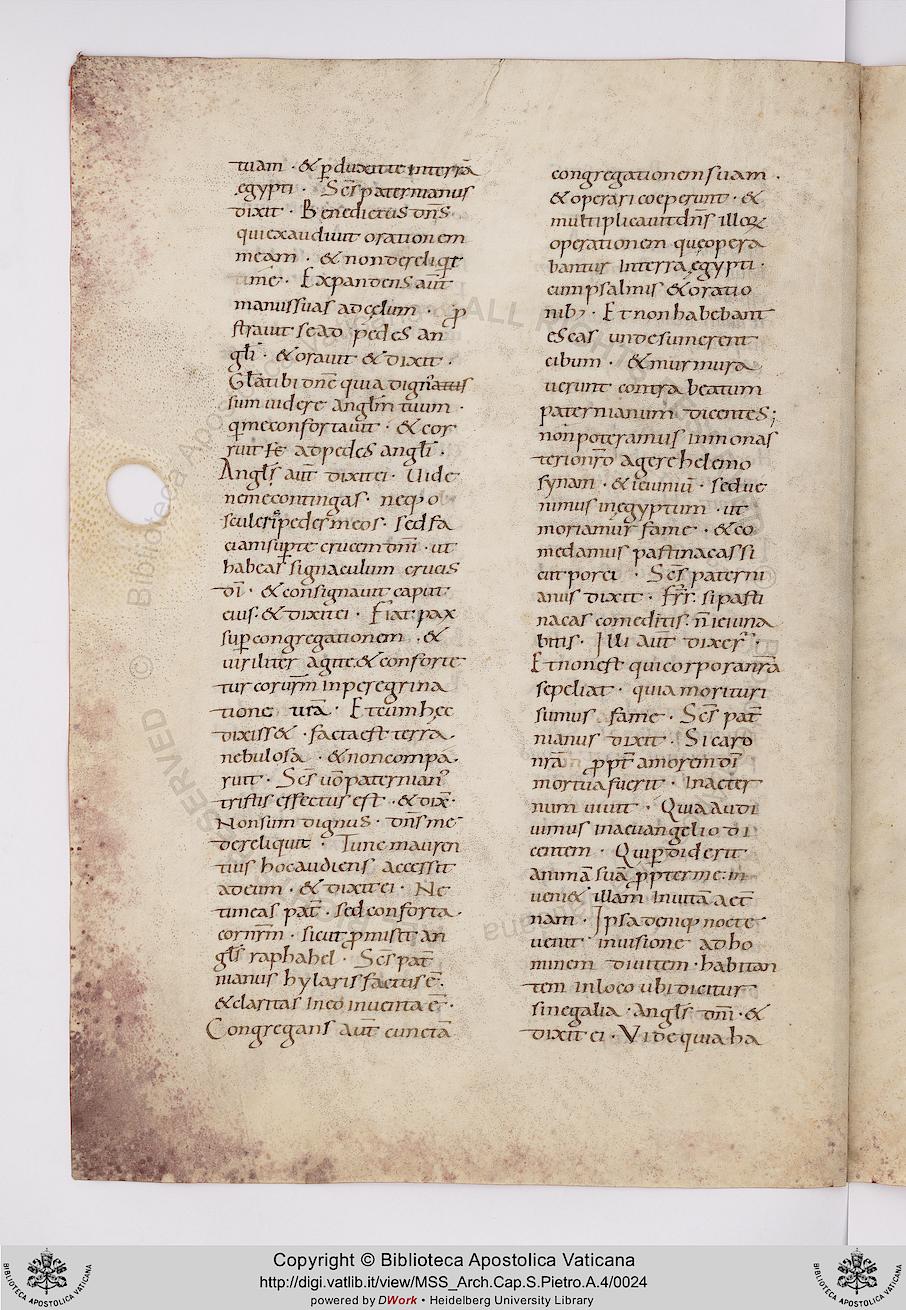 tuam · & pduxit te in terrā
egypti · Scs paternianus
dixit · Benedictus dns
qui exaudiuit orationem
meam · & non dereliqt
me · Expandens aut
manus suas ad celum · p
strauit se ad pedes an
gli · & orauit & dixit ·
Glā tibi dne quia dignatus
sum uidere anglm tuum ·
qm me confortauit · & cor
ruit ad pedes angli ·
Angls aut dixit ei · Uide
ne me contingas · neq; o
sculeris pedes meos · sed fa
ciam sup te crucem dni · ut
habeas signaculum crucis
di · & consignauit caput
eius · & dixit ei · Fiat pax
sup congregationem · &
uiriliter agite & conforte
tur cor urm in peregrina
tione urā · Et cum hec
dixiss& · facta est terra
nebulosa · & non compa
ruit · Scs uo paternian
tristis effectus est · & dix
Non sum dignus · dns me
dereliquit · Tunc mauren
tius hoc audiens accessit
ad eum · & dixit ei · Ne
timeas pat · sed conforta
cor nrm · sicut pmisit an
gls raphahel · Scs pat
nianus hylaris factus ē ·
& claritas in eo inuenta ē ·
Congregans aut cunctā
congregationem suam ·
& operari coeperunt · &
multiplicauit dns illoꝝ
operationem quę opera
bantur in terra ęgypti ·
cum psalmis & oratio
nib; · Et non habebant
escas unde sumerent
cibum · & murmura
uerunt contra beatum
paternianum dicentes;
non poteramus in monas
terio nro agere helemo
synam · & ieiuniu · sed ue
nimus in egyptum · ut
moriamur fame · & co
medamus pastinacas si
cut porci · Scs paterni
anus dixit · Frs · si pasti
nacas comeditis · n ieiuna
bitis · Illi aut dixer ·
Et non est qui corpora nrā
sepeliat · quia morituri
sumus fame · Scs pat
nianus dixit · Si caro
nrā ppt amorem di
mortua fuerit · In aeter
num uiuit · Quia audi
uimus in aeuangelio di
centem · Qui pdiderit
animā suā ppter me · in
ueni& illam In uitā aet
nam · Ipsa deniq; nocte
uenit in uisione ad ho
minem diuitem · habitan
tem in loco ubi dicitur
sinegalia · Angls dni · &
dixit ei · Vide quia ha
BIBLIOTECA APOSTOLICA VATICANA
Copyright © Biblioteca Apostolica Vaticana
http://digi.vatlib.it/view/MSS_Arch.Cap.S.Pietro.A.4/0024
powered by DWork • Heidelberg University Library
BIBLIOTECA APOSTOLICA VATICANA